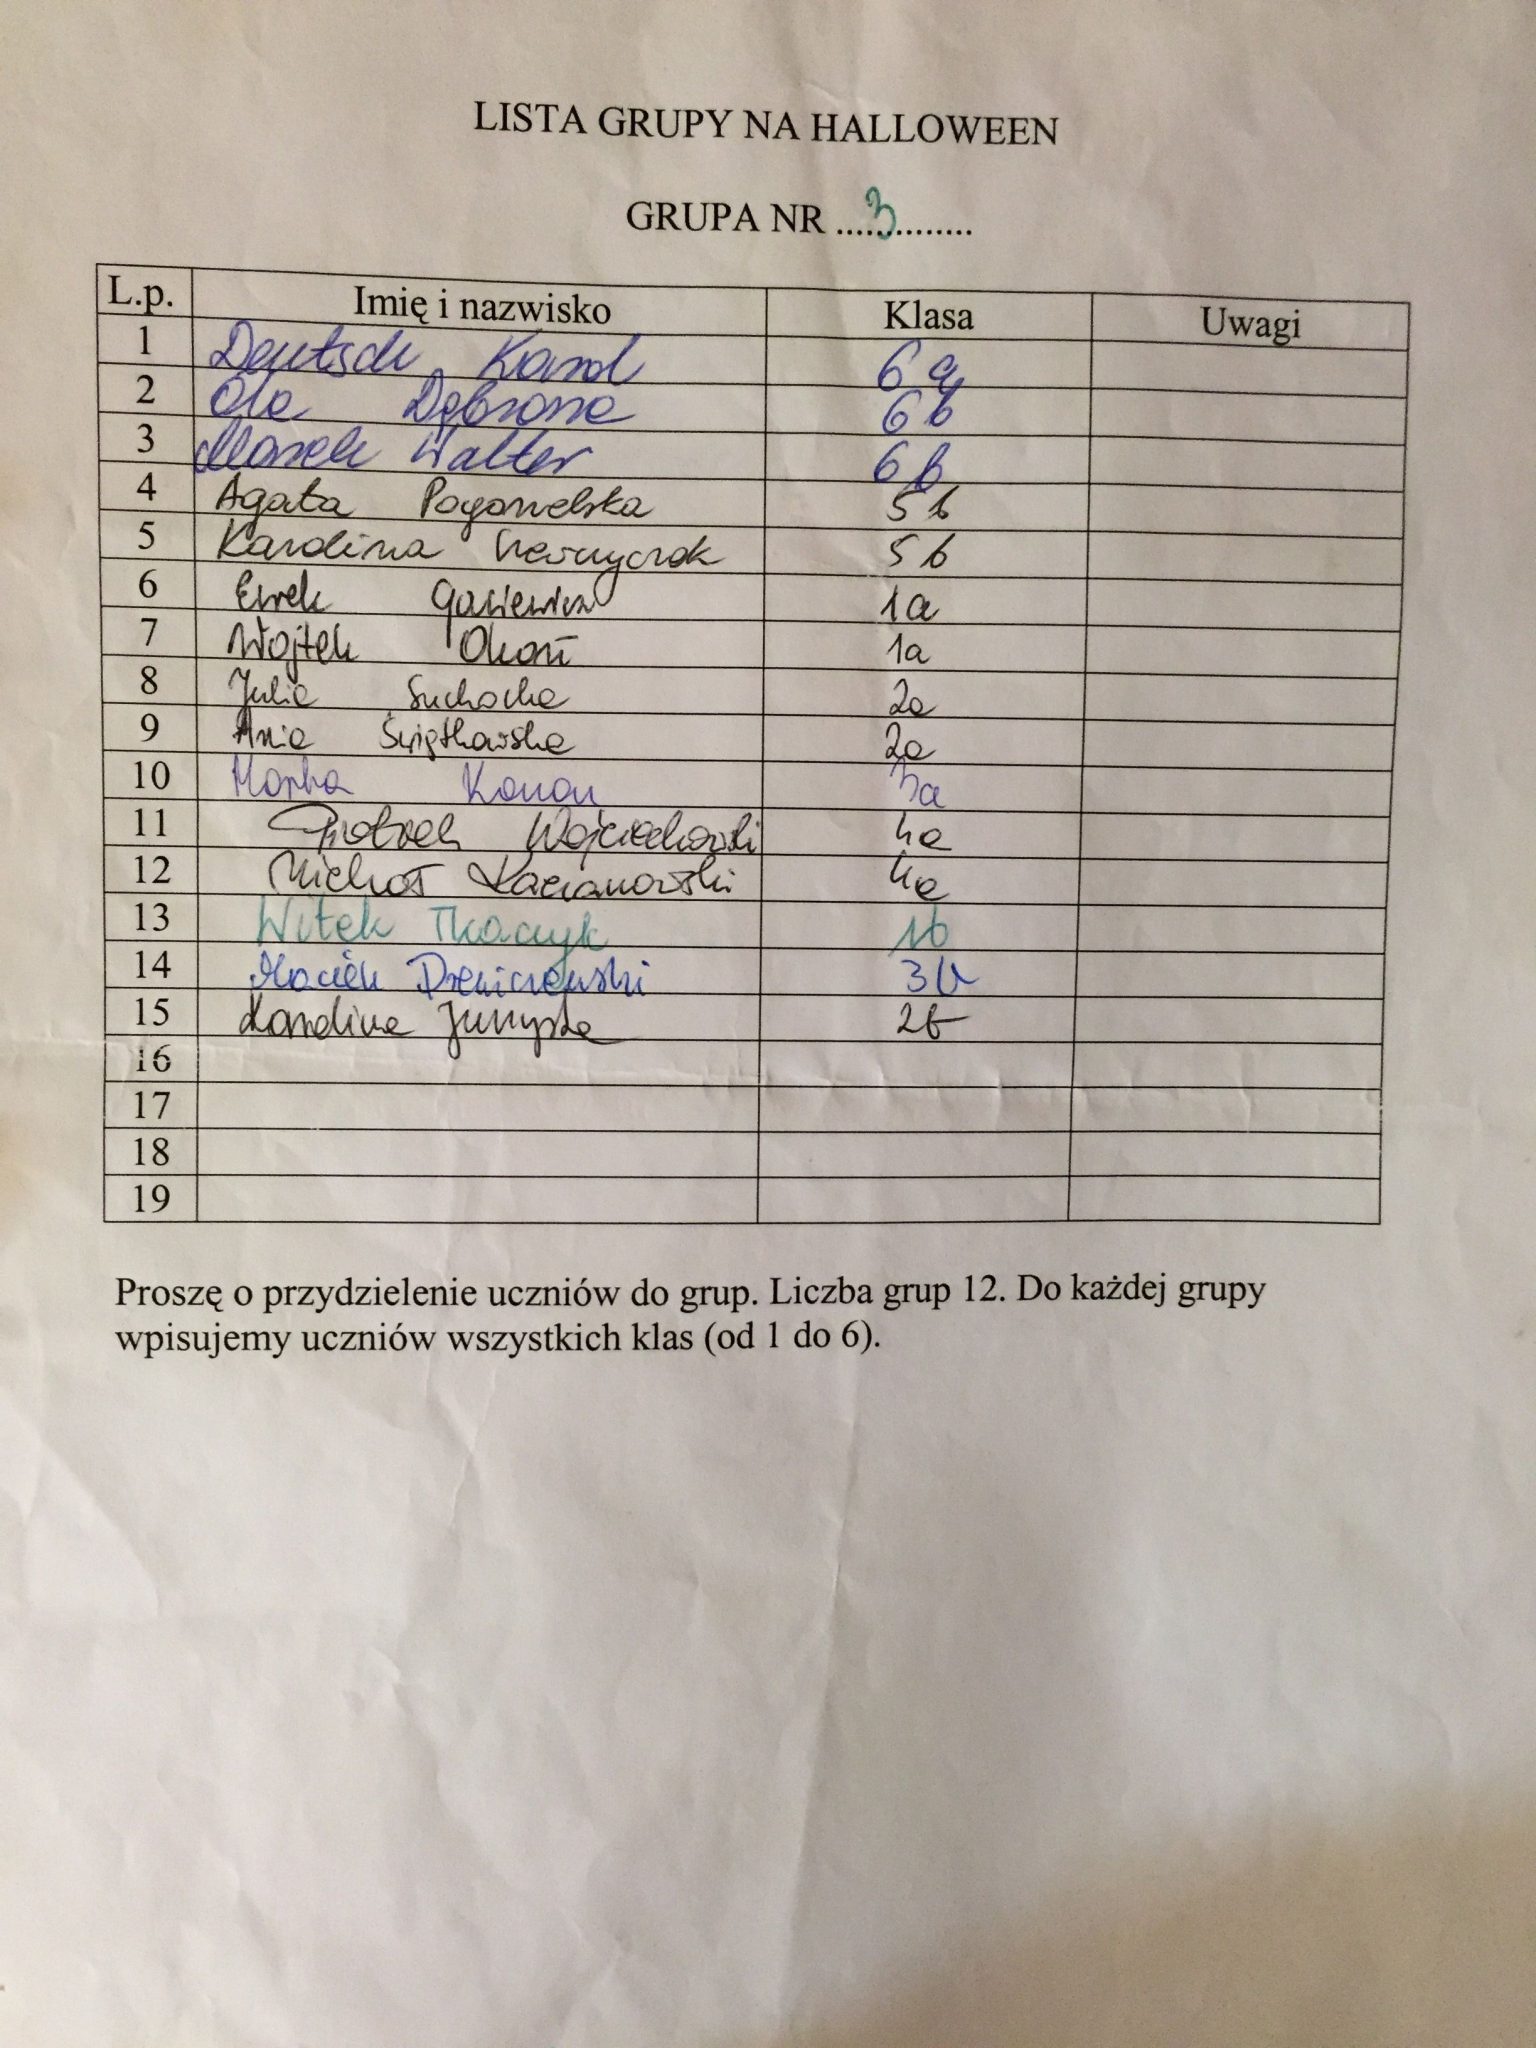 LISTA GRUPY NA HALLOWEEN
GRUPA NR ....3............
L.p. Imię i nazwisko Klasa Uwagi
1 Deutsch Karol 6a
2 Ola Dąbrowa 6b
3 Marek Walter 6b
4 Agata Pogorzelska 5b
5 Karolina 5b
6 1a
7 Wojtek Okoń 1a
8 Julia Suchocka 2a
9 Ania Świątkowska 2a
10 Marta Konon 3a
11 Piotrek Wojciechowski 4a
12 Michał Kacianowski 4a
13 Witek Tkaczyk 1b
14 Maciek 3b
15 Karolina 2b
16
17
18
19
Proszę o przydzielenie uczniów do grup. Liczba grup 12. Do każdej grupy
wpisujemy uczniów wszystkich klas (od 1 do 6).